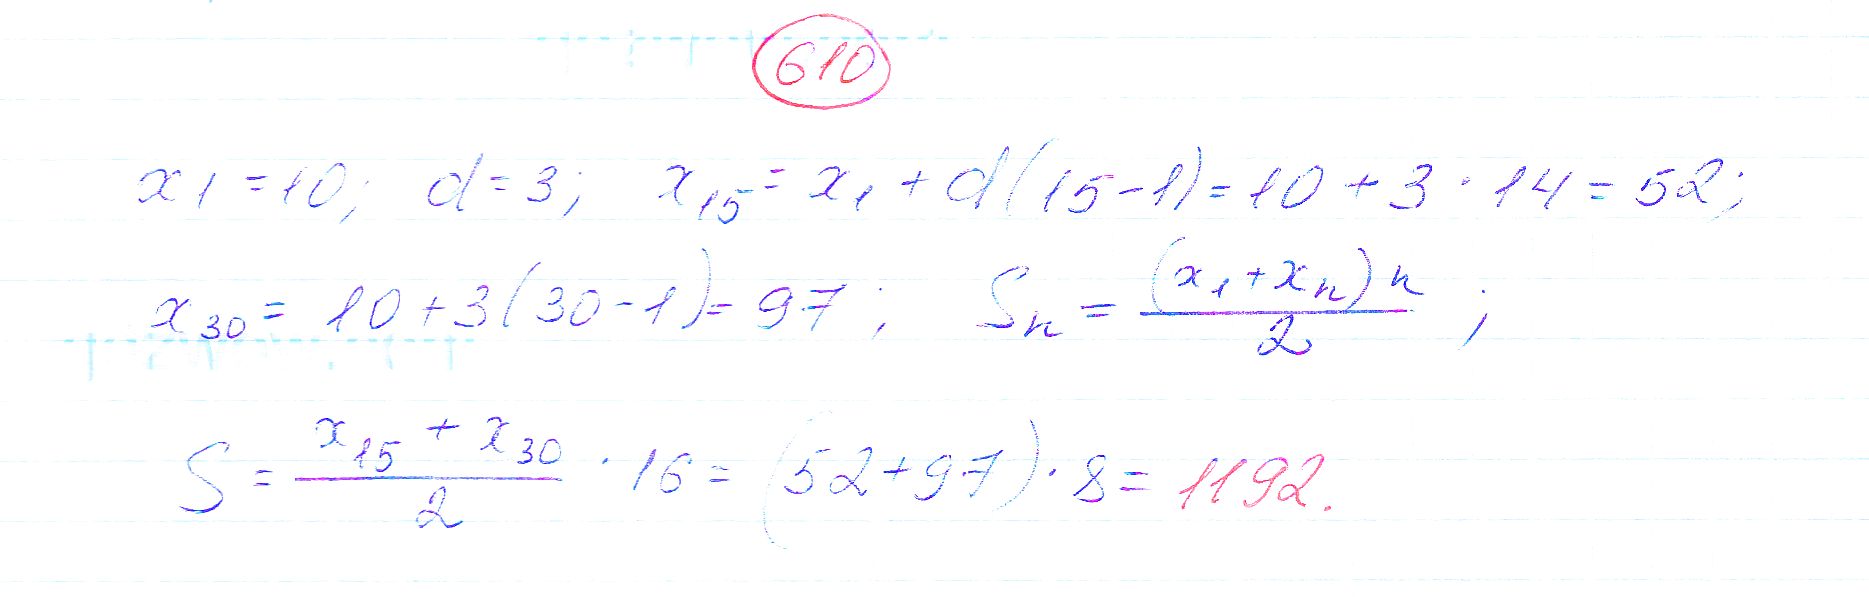 610
x₁ = 10; d = 3; x₁₅ = x₁ + d(15-1) = 10 + 3 · 14 = 52;
x₃₀ = 10 + 3(30-1) = 97; Sₙ = (x₁ + xₙ)n / 2 ;
S = (x₁₅ + x₃₀) / 2 · 16 = (52+97) · 8 = 1192.